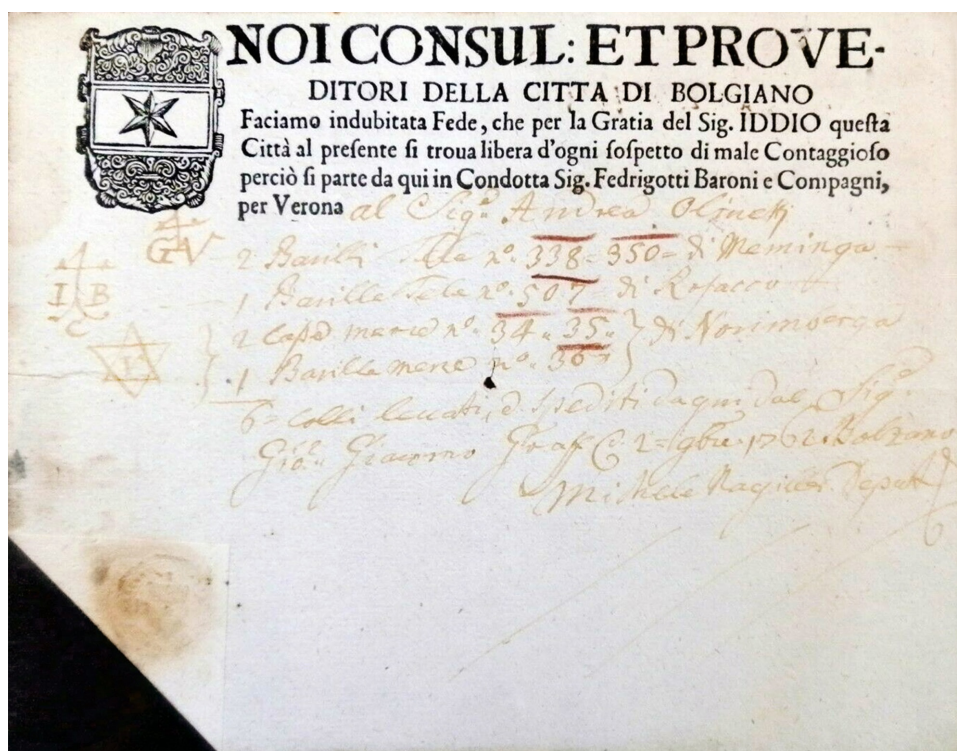 NOI CONSUL: ET PROVE-
DITORI DELLA CITTA DI BOLGIANO
Faciamo indubitata Fede, che per la Gratia del Sig. IDDIO questa
Città al presente si troua libera d'ogni sospetto di male Contaggioso
perciò si parte da qui in Condotta Sig. Fedrigotti Baroni e Compagni,
per Verona al Sig.r Andrea
GV
2 Barilli Tela nº 338 = 350 = di Meminga
I B
C
1 Barille Tela nº 507 di
2 Casse merce nº 34 = 35 = di Norimberga
1 Barille merce nº 36
6 = colli leuati, e spediti da qui dal Sig.r
Gio: Giacomo Graff 2 = 9bre 1762 Bolzano
Michele